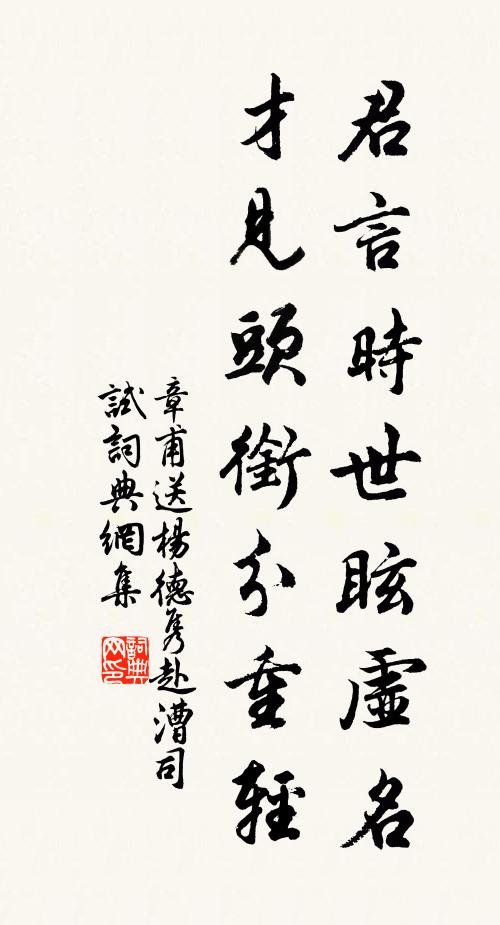 君言時世眩虛名
才見頭銜分重輕
章甫送楊德隽赴漕司
試詞典網集
詞典
网印